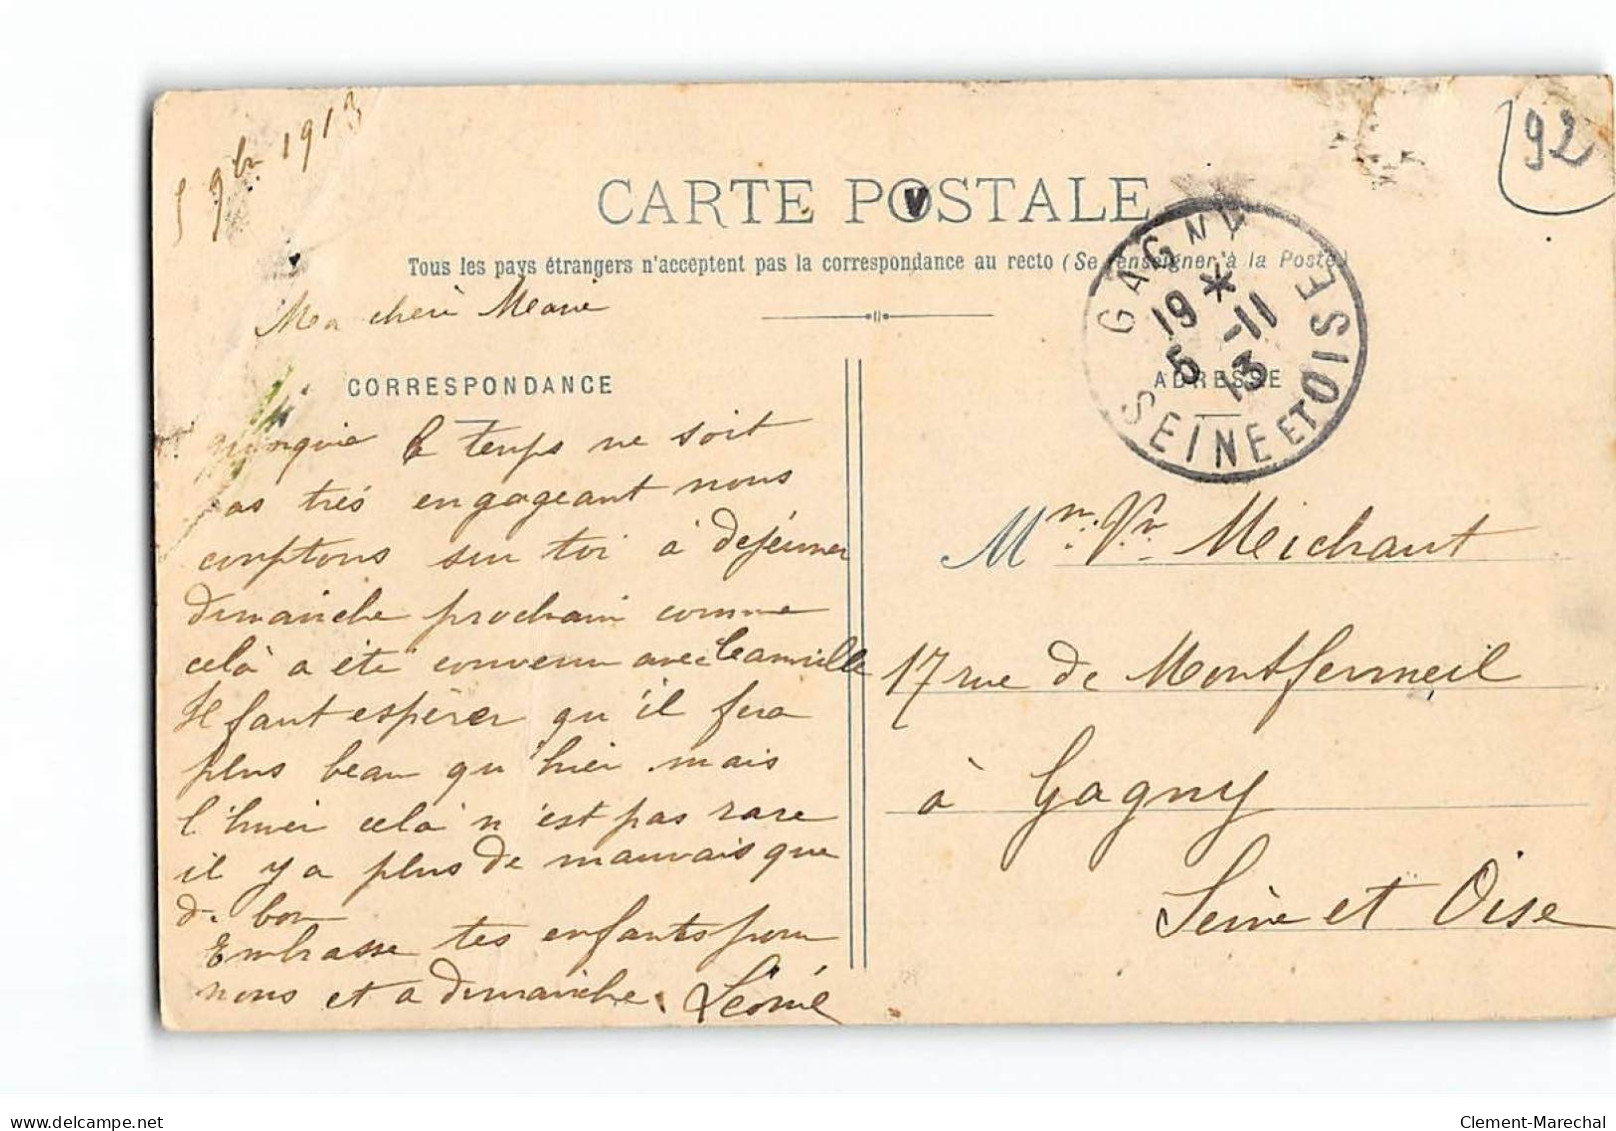 5 9bre 1913
92
CARTE POSTALE
V
Tous les pays étrangers n'acceptent pas la correspondance au recto (Se renseigner à la Poste)
GAGNY
19 * 5 -11 13
SEINE ET OISE
Ma cheri Marie
CORRESPONDANCE
ADRESSE
quoique le temps ne soit
pas trés engageant nous
comptons sur toi à dejéuner
dimanche prochain comme
celà a été convenu avec Camille
Il faut espérer qu'il fera
plus beau qu'hier mais
l'hiver celà n'est pas rare
il y a plus de mauvais que
de bon
Embrasse tes enfants pour
nous et a dimanche. Léonie
Mme Vve Michaut
17 rue de Montfermeil
à Gagny
Seine et Oise
Clement-Marechal